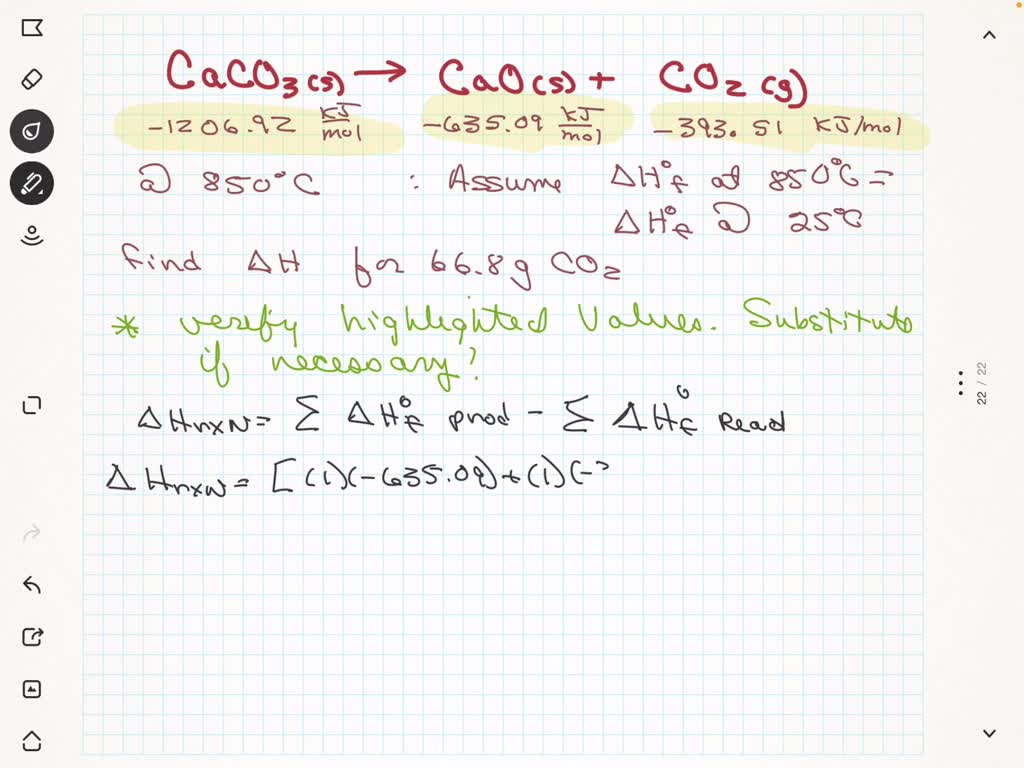 CaCO3(s) → CaO(s) + CO2(g)
-1206.92 KJ/mol -635.09 KJ/mol -393.51 KJ/mol
@ 850°C : Assume ΔH°f at 850°C =
ΔH°f @ 25°C
find ΔH for 66.8g CO2
* verify highlighted values. Substitute
if necessary!
ΔHrxN = Σ ΔH°f prod - Σ ΔH°f React
ΔHrxN = [(1)(-635.09)+(1)(-
22 / 22